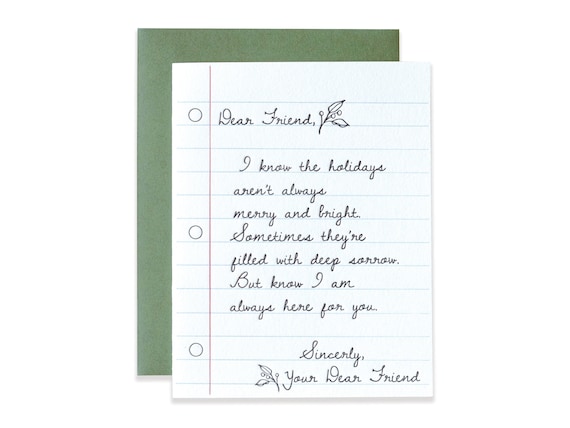 Dear Friend,
I know the holidays
aren't always
merry and bright.
Sometimes they're
filled with deep sorrow.
But know I am
always here for you.
Sincerly,
Your Dear Friend